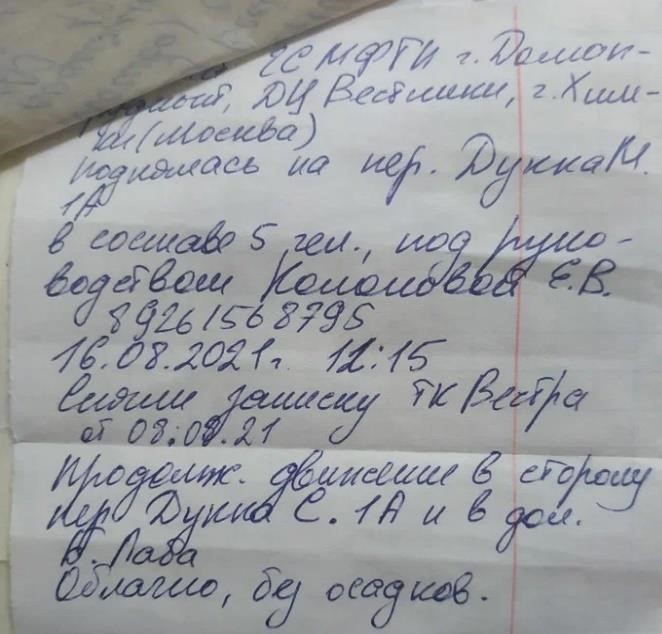 ГС МФТИ г. Долгоп-
рудный, ДЦ Вестники, г. Хим-
ки (Москва)
поднялась на пер. Дукка М.
1А
в составе 5 чел., под руко-
водством Колоповой Е.В.
89261568795
16.08.2021г. 12:15
Сняли записку ТК Вестра
от 08.08.21
Продолж. движение в сторону
пер Дукка С. 1А и в дол.
Б. Лаба
Облачно, без осадков.